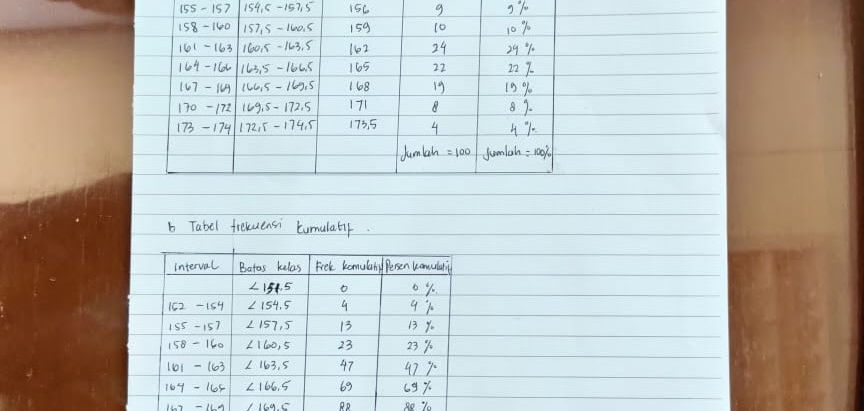 155 - 157 154,5 - 157,5 156 9 9%
158 - 160 157,5 - 160,5 159 10 10%
161 - 163 160,5 - 163,5 162 24 24%
164 - 166 163,5 - 166,5 165 22 22%
167 - 169 166,5 - 169,5 168 19 19%
170 - 172 169,5 - 172,5 171 8 8%
173 - 174 172,5 - 174,5 173,5 4 4%
Jumlah = 100 Jumlah = 100%
b Tabel frekuensi kumulatif.
Interval Batas kelas Frek komulatif Persen komulatif
<151.5 0 0%
152 - 154 <154.5 4 4%
155 - 157 <157,5 13 13%
158 - 160 <160,5 23 23%
161 - 163 <163,5 47 47%
164 - 166 <166,5 69 69%
167 - 169 <169.5 88 88%